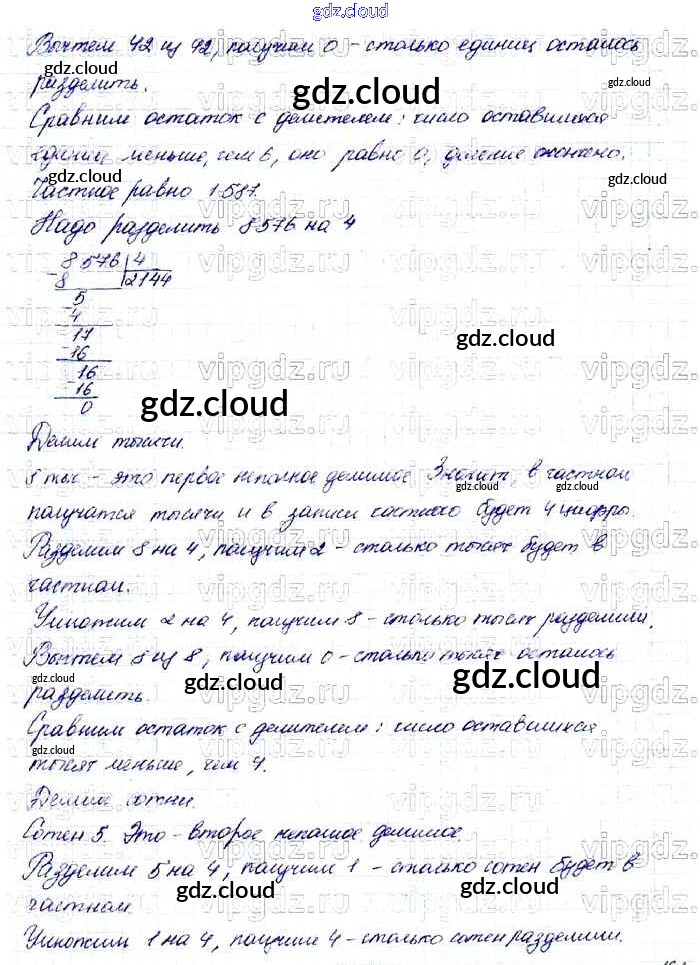 gdz.cloud
Вычтем 42 из 42, получим 0 - столько единиц осталось
разделить.
Сравним остаток с делителем: число оставшихся
единиц меньше, чем 6, оно равно 0, деление окончено.
Частное равно 1587.
Надо разделить 8576 на 4
8 576 4
- 8 2144
5
4
17
- 16
16
- 16
0
Делим тысячи.
8 тыс - это первое неполное делимое Значит, в частном
получатся тысячи и в записи частного будет 4 цифры.
Разделим 8 на 4, получим 2 - столько тысяч будет в
частном.
Умножим 2 на 4, получим 8 - столько тысяч разделили.
Вычтем 8 из 8, получим 0 - столько тысяч осталось
разделить.
Сравним остаток с делителем: число оставшихся
тысяч меньше, чем 4.
Делим сотни.
Сотен 5. Это - второе неполное делимое.
Разделим 5 на 4, получим 1 - столько сотен будет в
частном.
Умножим 1 на 4, получим 4 - столько сотен разделили.